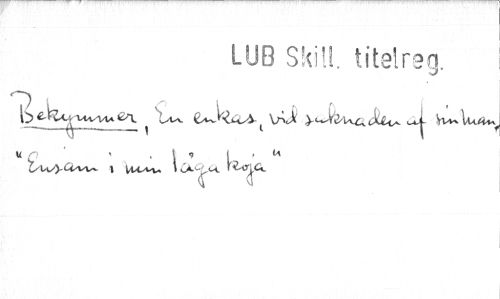 LUB Skill. titelreg.
Bekymmer, En enkas, vid saknaden af sin man.
"Ensam i min låga koja"